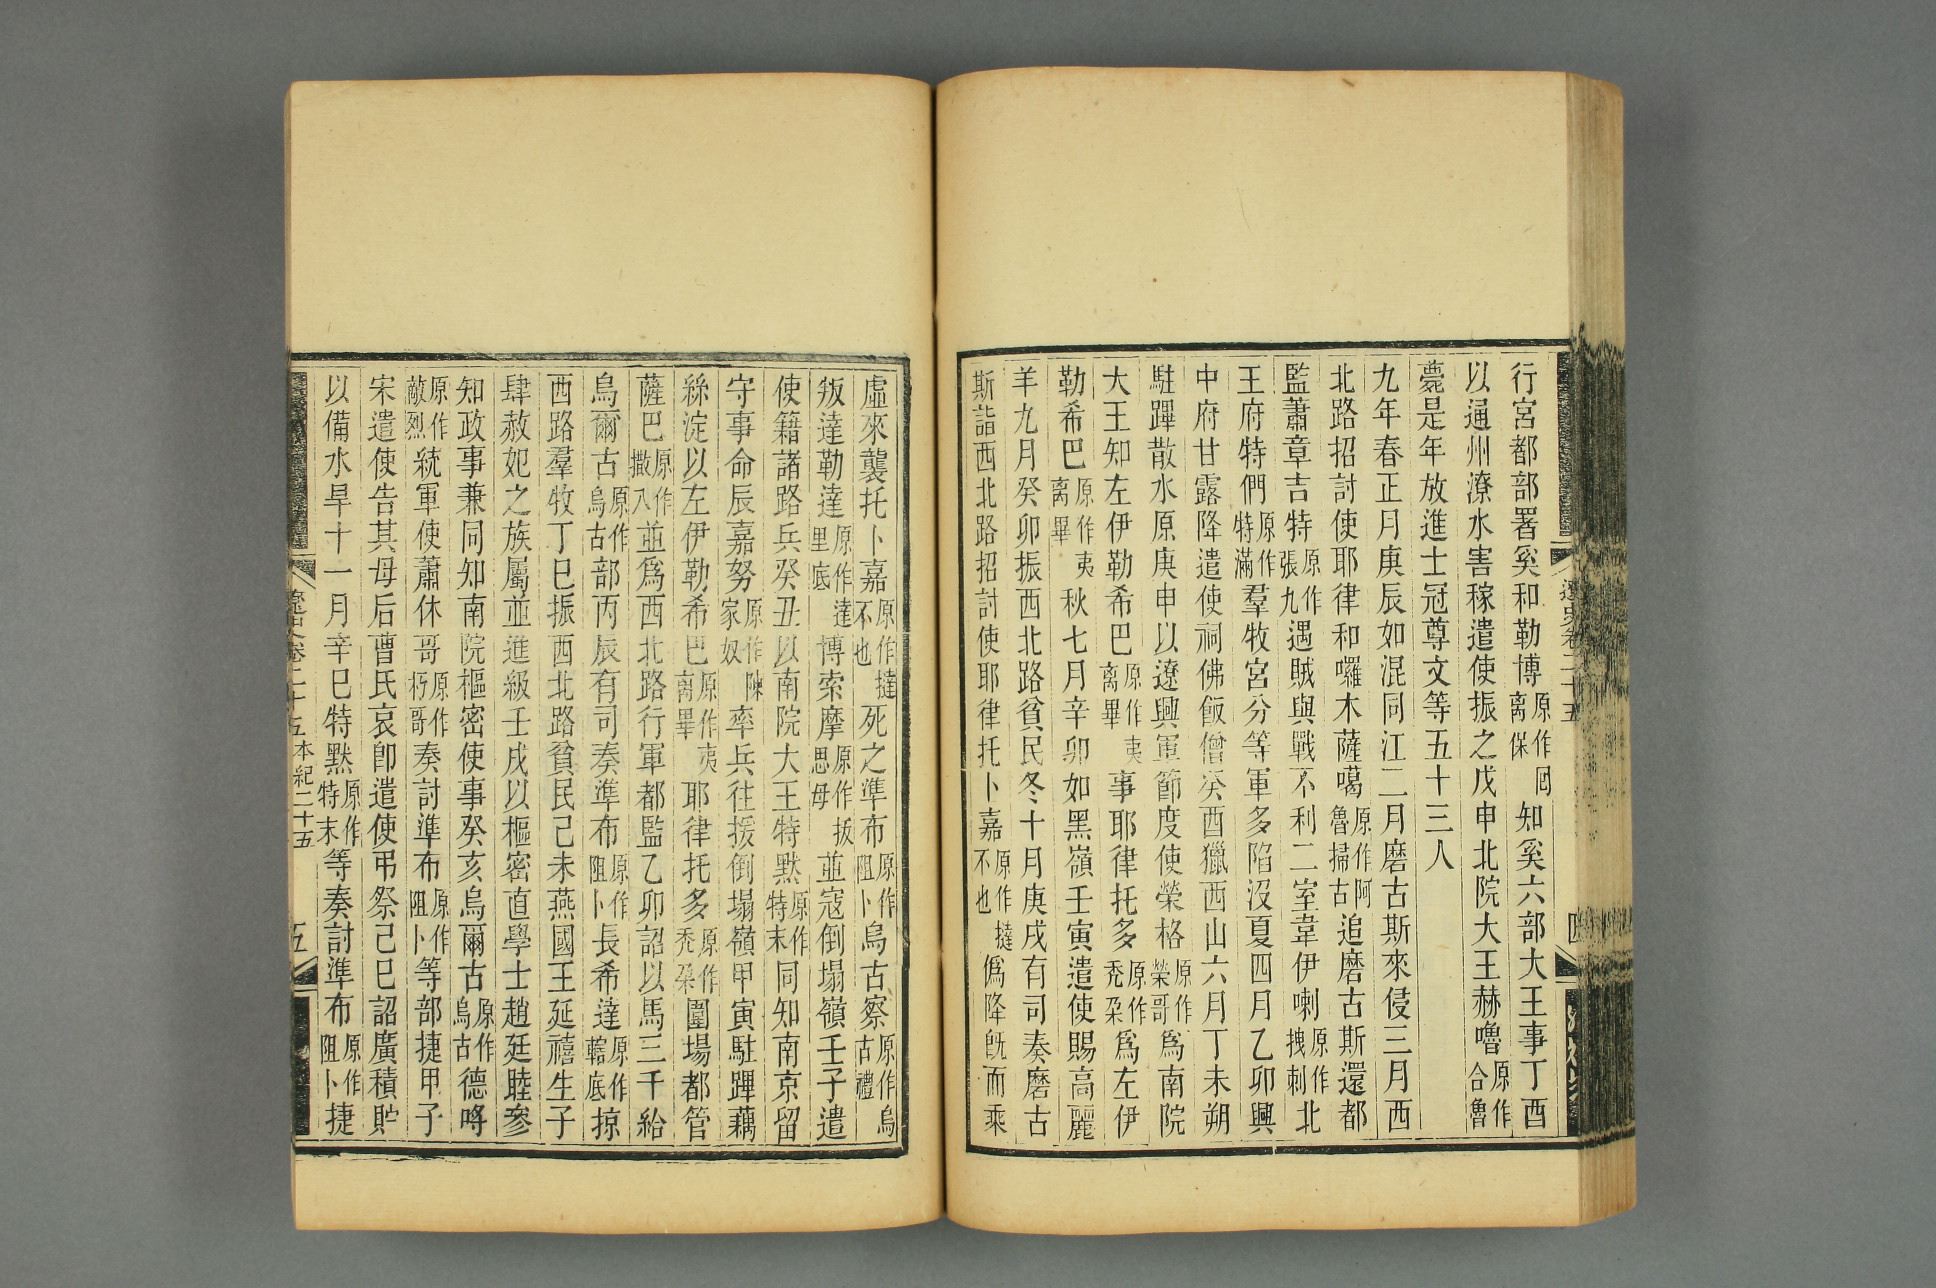 行宮都部署奚和勒博原作囘离保知奚六部大王事丁酉
以通州潦水害稼遣使振之戊申北院大王赫嚕原作合魯
薨是年放進士冠尊文等五十三人
九年春正月庚辰如混同江二月磨古斯來侵三月西
北路招討使耶律和囉木薩噶原作阿魯掃古追磨古斯還都
監蕭章吉特原作張九遇賊與戰不利二室韋伊喇原作拽剌北
王府特們原作特滿羣牧宮分等軍多陷沒夏四月乙卯興
中府甘露降遣使祠佛飯僧癸酉獵西山六月丁未朔
駐蹕散水原庚申以遼興軍節度使榮格原作榮哥爲南院
大王知左伊勒希巴原作夷离畢事耶律托多原作禿朶爲左伊
勒希巴原作夷离畢秋七月辛卯如黑嶺壬寅遣使賜高麗
羊九月癸卯振西北路貧民冬十月庚戌有司奏磨古
斯詣西北路招討使耶律托卜嘉原作撻不也僞降旣而乘
遼史卷二十五
四
虛來襲托卜嘉原作撻不也死之準布原作阻卜烏古察原作烏古禮
叛達勒達原作達里底博索摩原作拔思母並寇倒塌嶺壬子遣
使籍諸路兵癸丑以南院大王特默原作特末同知南京留
守事命辰嘉努原作陳家奴率兵往援倒塌嶺甲寅駐蹕藕
絲淀以左伊勒希巴原作夷离畢耶律托多原作禿朶圍場都管
薩巴原作撒八並爲西北路行軍都監乙卯詔以馬三千給
烏爾古原作烏古部丙辰有司奏準布原作阻卜長希達原作轄底掠
西路羣牧丁巳振西北路貧民己未燕國王延禧生子
肆赦妃之族屬並進級壬戌以樞密直學士趙廷睦參
知政事兼同知南院樞密使事癸亥烏爾古原作烏古德哷
原作敵烈統軍使蕭休哥原作朽哥奏討準布原作阻卜等部捷甲子
宋遣使告其母后曹氏哀卽遣使弔祭己巳詔廣積貯
以備水旱十一月辛巳特默原作特末等奏討準布原作阻卜捷
遼史卷二十五 本紀二十五
五